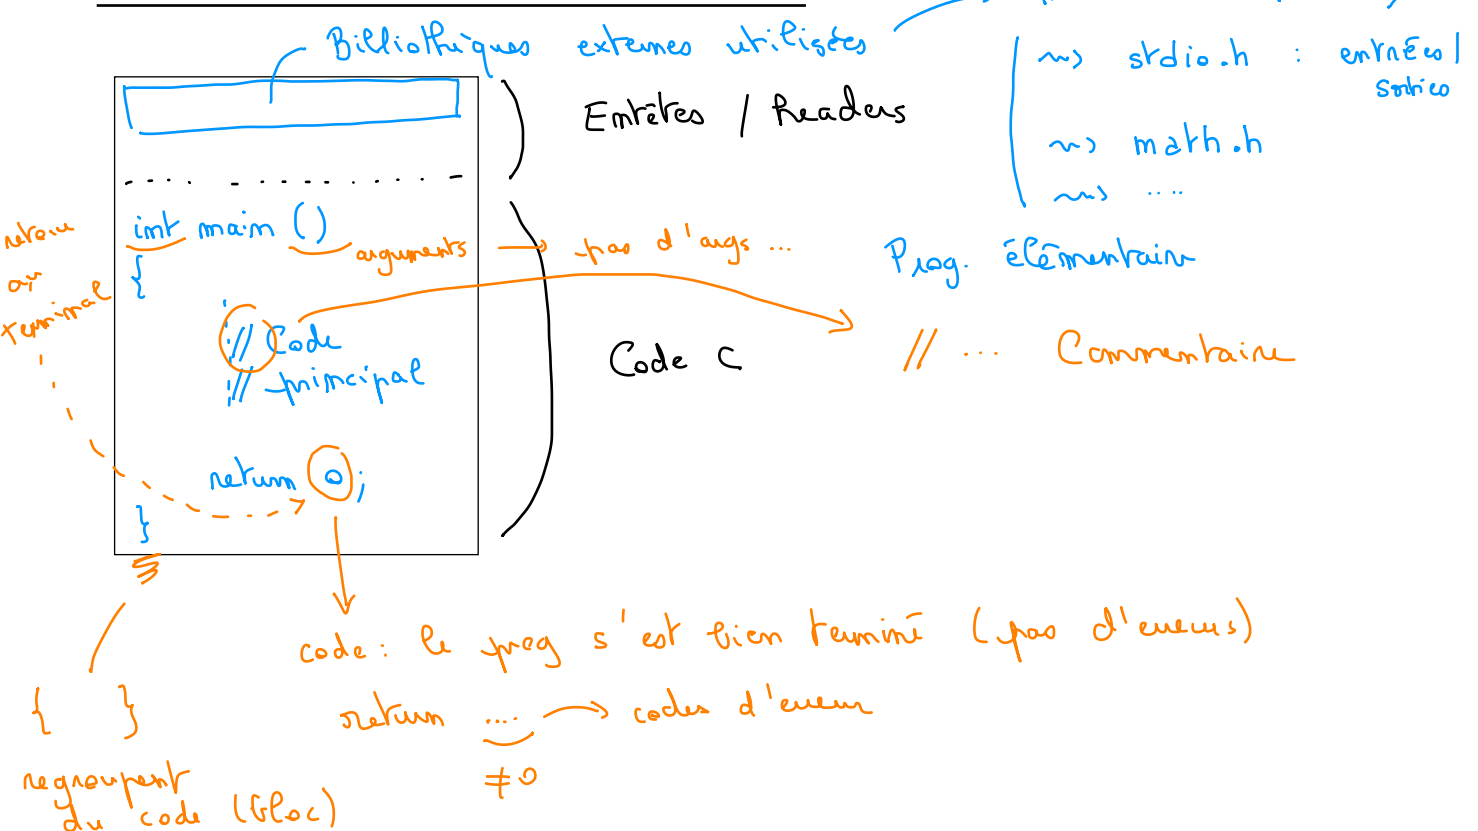 Bibliothèques externes utilisées
~> stdio.h : entrées/
sorties
Entêtes / Headers
~> math.h
~> ....
int main ()
retour
au
terminal
arguments → pas d'args ...
Prog. élémentaire
{
// Code
// principal
Code C
// ... Commentaire
return 0;
}
code : le prog s'est bien terminé (pas d'erreurs)
return .... → codes d'erreur
≠0
{ }
regroupent
du code (bloc)